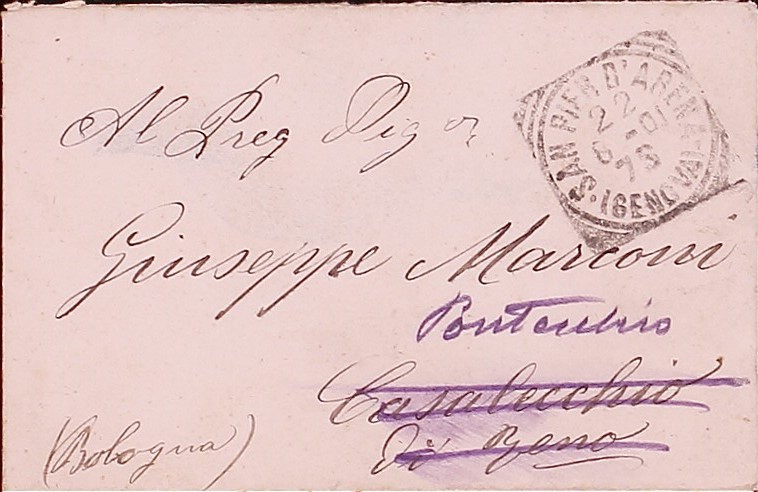 Al Preg Sigor
SAN PIER D'ARENA
(GENOVA)
Giuseppe Marconi
Pontecchio
Casalecchio
Di Reno
(Bologna)